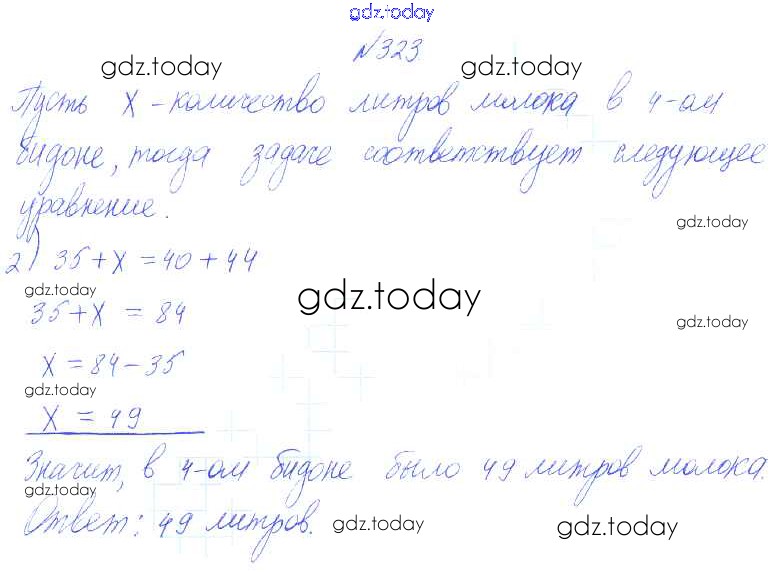 gdz.today
№323
gdz.today gdz.today
Пусть х - количество литров молока в 4-ом
бидоне, тогда задаче соответствует следующее
уравнение.
gdz.today
2) 35+х = 40+44
gdz.today
gdz.today
35+х = 84
gdz.today
х = 84-35
gdz.today
х = 49
Значит, в 4-ом бидоне было 49 литров молока.
gdz.today
Ответ: 49 литров.
gdz.today gdz.today